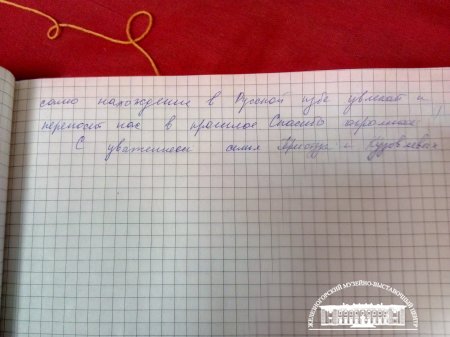 само нахождение в Русской избе увлекает и
переносит нас в прошлое Спасибо огромное.
С уважением семья и
ЖЕЛЕЗНОГОРСКИЙ МУЗЕЙНО-ВЫСТАВОЧНЫЙ ЦЕНТР